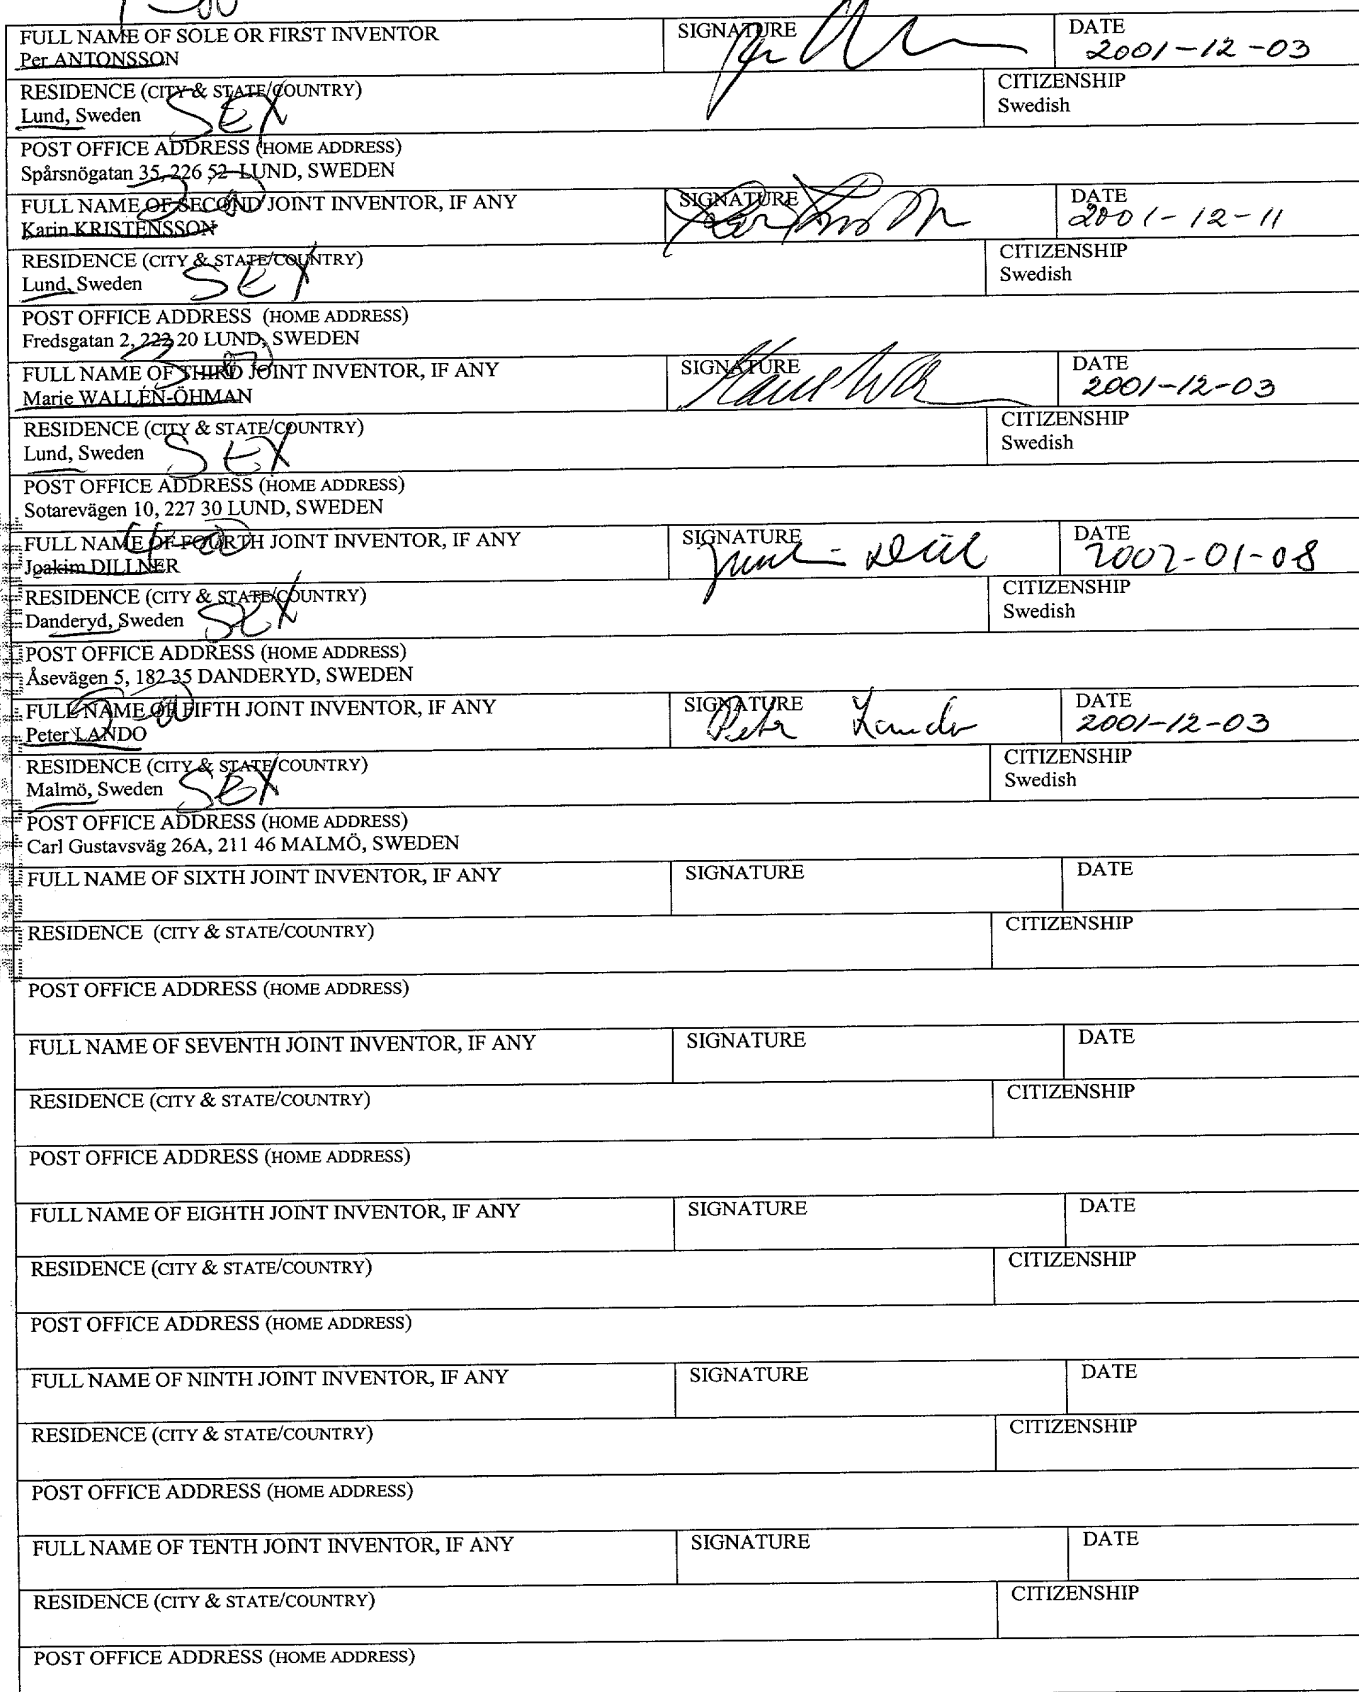 FULL NAME OF SOLE OR FIRST INVENTOR SIGNATURE DATE
Per ANTONSSON 2001-12-03
RESIDENCE (CITY & STATE/COUNTRY) CITIZENSHIP
Lund, Sweden SEX Swedish
POST OFFICE ADDRESS (HOME ADDRESS)
Spårsnögatan 35, 226 52 LUND, SWEDEN
FULL NAME OF SECOND JOINT INVENTOR, IF ANY SIGNATURE DATE
Karin KRISTENSSON 2001-12-11
RESIDENCE (CITY & STATE/COUNTRY) CITIZENSHIP
Lund, Sweden SEX Swedish
POST OFFICE ADDRESS (HOME ADDRESS)
Fredsgatan 2, 222 20 LUND, SWEDEN
FULL NAME OF THIRD JOINT INVENTOR, IF ANY SIGNATURE DATE
Marie WALLÉN-ÖHMAN 2001-12-03
RESIDENCE (CITY & STATE/COUNTRY) CITIZENSHIP
Lund, Sweden SEX Swedish
POST OFFICE ADDRESS (HOME ADDRESS)
Sotarevägen 10, 227 30 LUND, SWEDEN
FULL NAME OF FOURTH JOINT INVENTOR, IF ANY SIGNATURE DATE
Joakim DILLNER 2002-01-08
RESIDENCE (CITY & STATE/COUNTRY) CITIZENSHIP
Danderyd, Sweden SEX Swedish
POST OFFICE ADDRESS (HOME ADDRESS)
Åsevägen 5, 182 35 DANDERYD, SWEDEN
FULL NAME OF FIFTH JOINT INVENTOR, IF ANY SIGNATURE DATE
Peter LANDO Peter Lando 2001-12-03
RESIDENCE (CITY & STATE/COUNTRY) CITIZENSHIP
Malmö, Sweden SEX Swedish
POST OFFICE ADDRESS (HOME ADDRESS)
Carl Gustavsväg 26A, 211 46 MALMÖ, SWEDEN
FULL NAME OF SIXTH JOINT INVENTOR, IF ANY SIGNATURE DATE
RESIDENCE (CITY & STATE/COUNTRY) CITIZENSHIP
POST OFFICE ADDRESS (HOME ADDRESS)
FULL NAME OF SEVENTH JOINT INVENTOR, IF ANY SIGNATURE DATE
RESIDENCE (CITY & STATE/COUNTRY) CITIZENSHIP
POST OFFICE ADDRESS (HOME ADDRESS)
FULL NAME OF EIGHTH JOINT INVENTOR, IF ANY SIGNATURE DATE
RESIDENCE (CITY & STATE/COUNTRY) CITIZENSHIP
POST OFFICE ADDRESS (HOME ADDRESS)
FULL NAME OF NINTH JOINT INVENTOR, IF ANY SIGNATURE DATE
RESIDENCE (CITY & STATE/COUNTRY) CITIZENSHIP
POST OFFICE ADDRESS (HOME ADDRESS)
FULL NAME OF TENTH JOINT INVENTOR, IF ANY SIGNATURE DATE
RESIDENCE (CITY & STATE/COUNTRY) CITIZENSHIP
POST OFFICE ADDRESS (HOME ADDRESS)